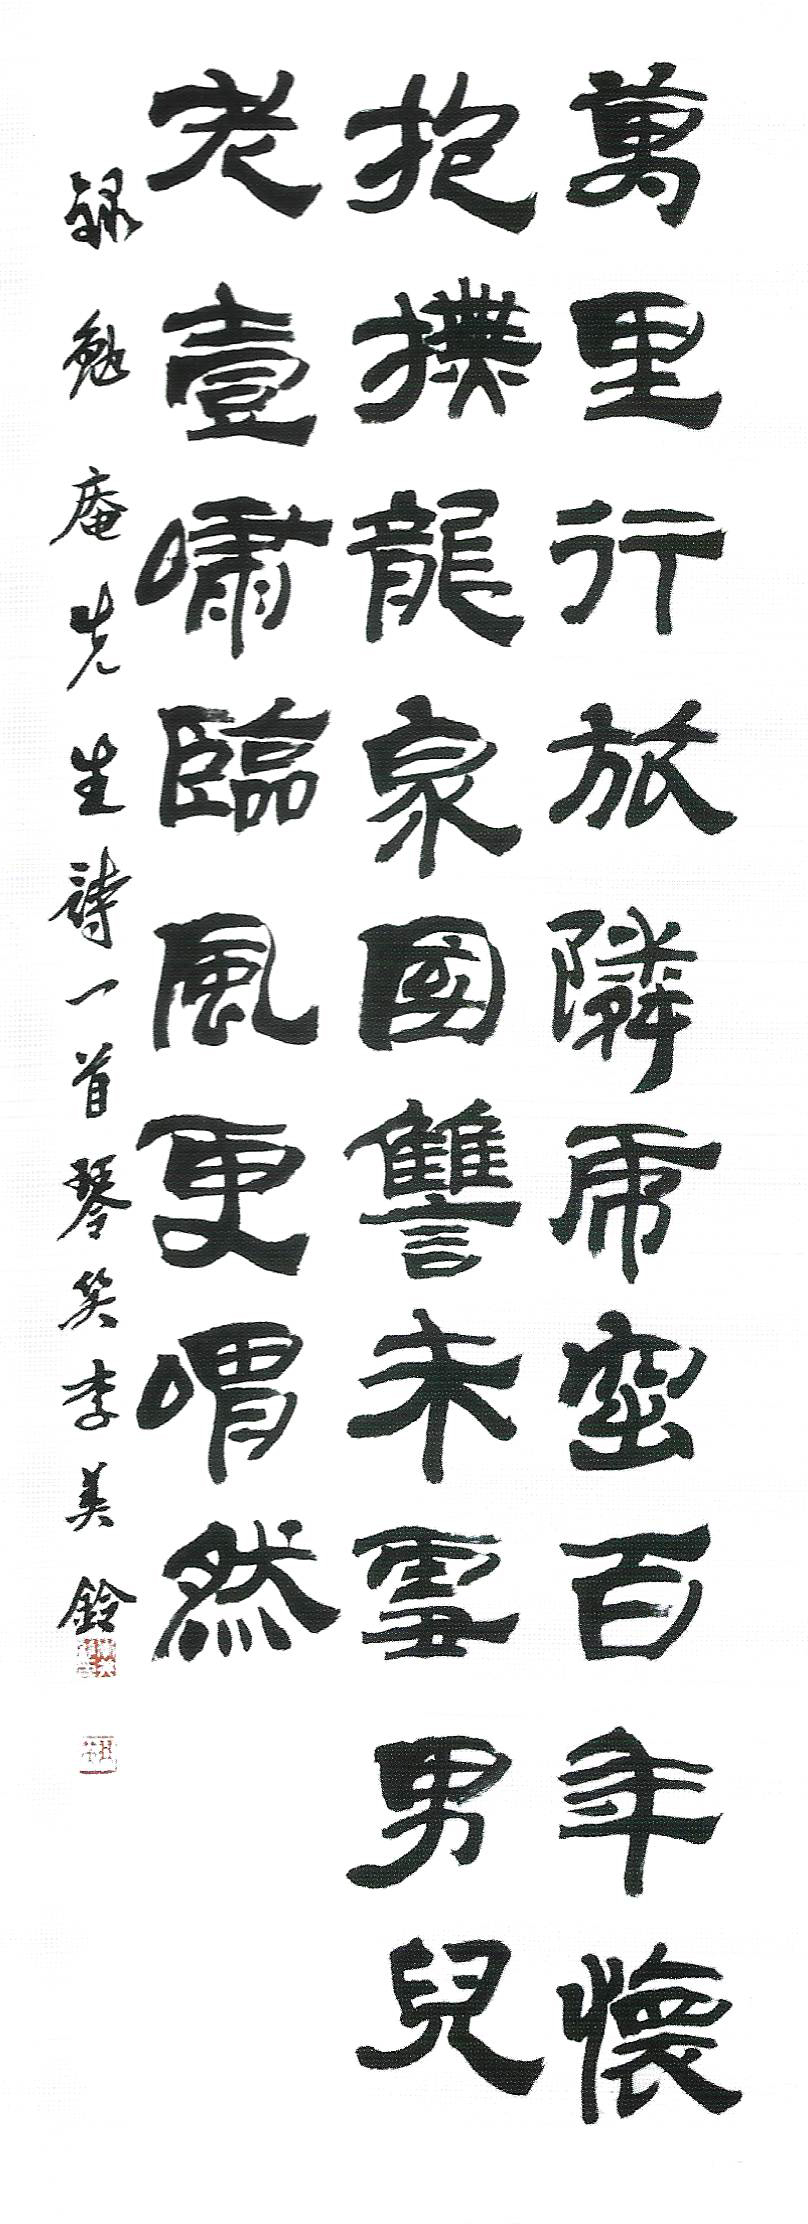 萬里行旅隣虎密百年懷
抱撫龍泉國讐未雪男兒
老壹嘯臨風更喟然
録勉庵先生詩一首琴笑李美鈴